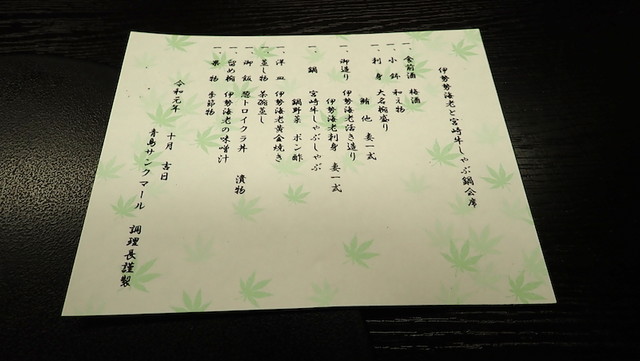 伊勢海老と宮崎牛しゃぶ鍋会席
一、食前酒 梅酒
一、小鉢 和え物
一、刺身 大名椀盛り
鮪 他 妻一式
一、御造り 伊勢海老活き造り
伊勢海老刺身 妻一式
一、鍋 宮崎牛しゃぶしゃぶ
鍋野菜 ポン酢
一、洋皿 伊勢海老黄金焼き
一、蒸し物 茶碗蒸し
一、御飯 トロイクラ丼 漬物
一、留め椀 伊勢海老の味噌汁
一、果物 季節物
令和元年 十月 吉日
青島サンクマール 調理長謹製